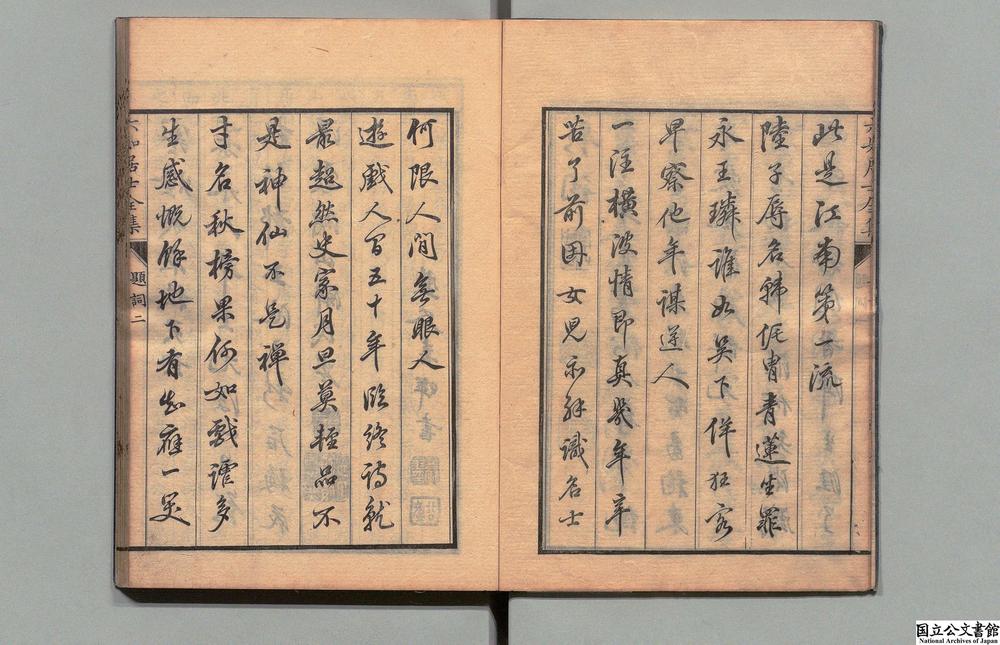 此是江南第一流
陸子辱名韓侂胄青蓮生罪
永王璘誰如吳下佯狂客
早察他年謀逆人
一注橫波情即真幾年辛
苦了前因女兒亦解識名士
何限人間無眼人
遊戲人間五十年臨終詩就
最超然史家月旦莫輕品不
是神仙不是禪
才名秋榜果何如戲謔多
生感慨餘地下有知應一笑
六如居士全集
題詞二
国立公文書館
National Archives of Japan